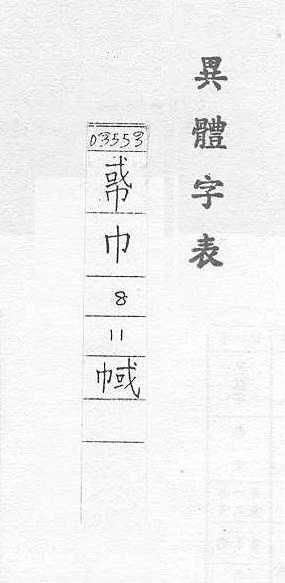 異體字表
03553
巾
8
11
㡇